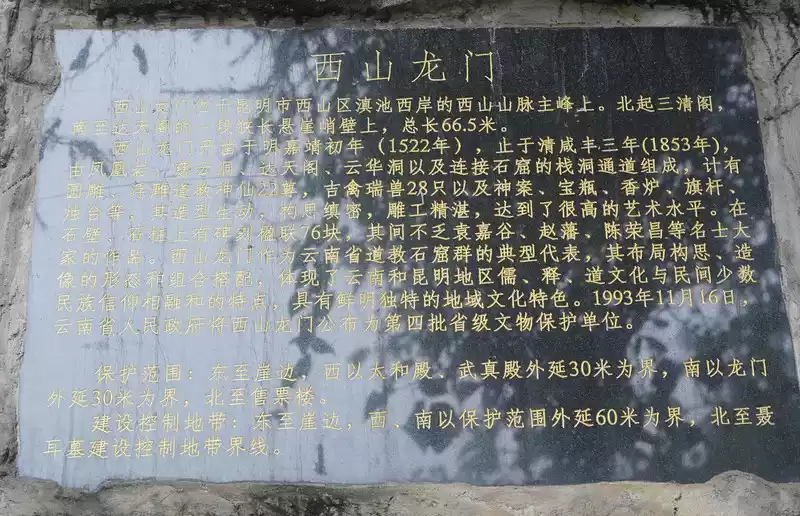 西山龙门
西山龙门位于昆明市西山区滇池西岸的西山山脉主峰上。北起三清阁，
南至达天阁的一段狭长悬崖峭壁上，总长66.5米。
西山龙门开凿于明嘉靖初年（1522年），止于清咸丰三年(1853年)，
由凤凰岩、慈云洞、达天阁、云华洞以及连接石窟的栈洞通道组成，计有
圆雕、浮雕道教神仙22尊，吉禽瑞兽28只以及神案、宝瓶、香炉、旗杆、
烛台等，其造型生动，构思缜密，雕工精湛，达到了很高的艺术水平。在
石壁、石柱上有碑刻楹联76块，其间不乏袁嘉谷、赵藩，陈荣昌等名士大
家的作品。西山龙门作为云南省道教石窟群的典型代表，其布局构思、造
像的形态和组合搭配，体现了云南和昆明地区儒、释、道文化与民间少数
民族信仰相融和的特点，具有鲜明独特的地域文化特色。1993年11月16日，
云南省人民政府将西山龙门公布为第四批省级文物保护单位。
保护范围：东至崖边，西以太和殿、武真殿外延30米为界，南以龙门
外延30米为界，北至售票楼。
建设控制地带：东至崖边，西、南以保护范围外延60米为界，北至聂
耳墓建设控制地带界线。